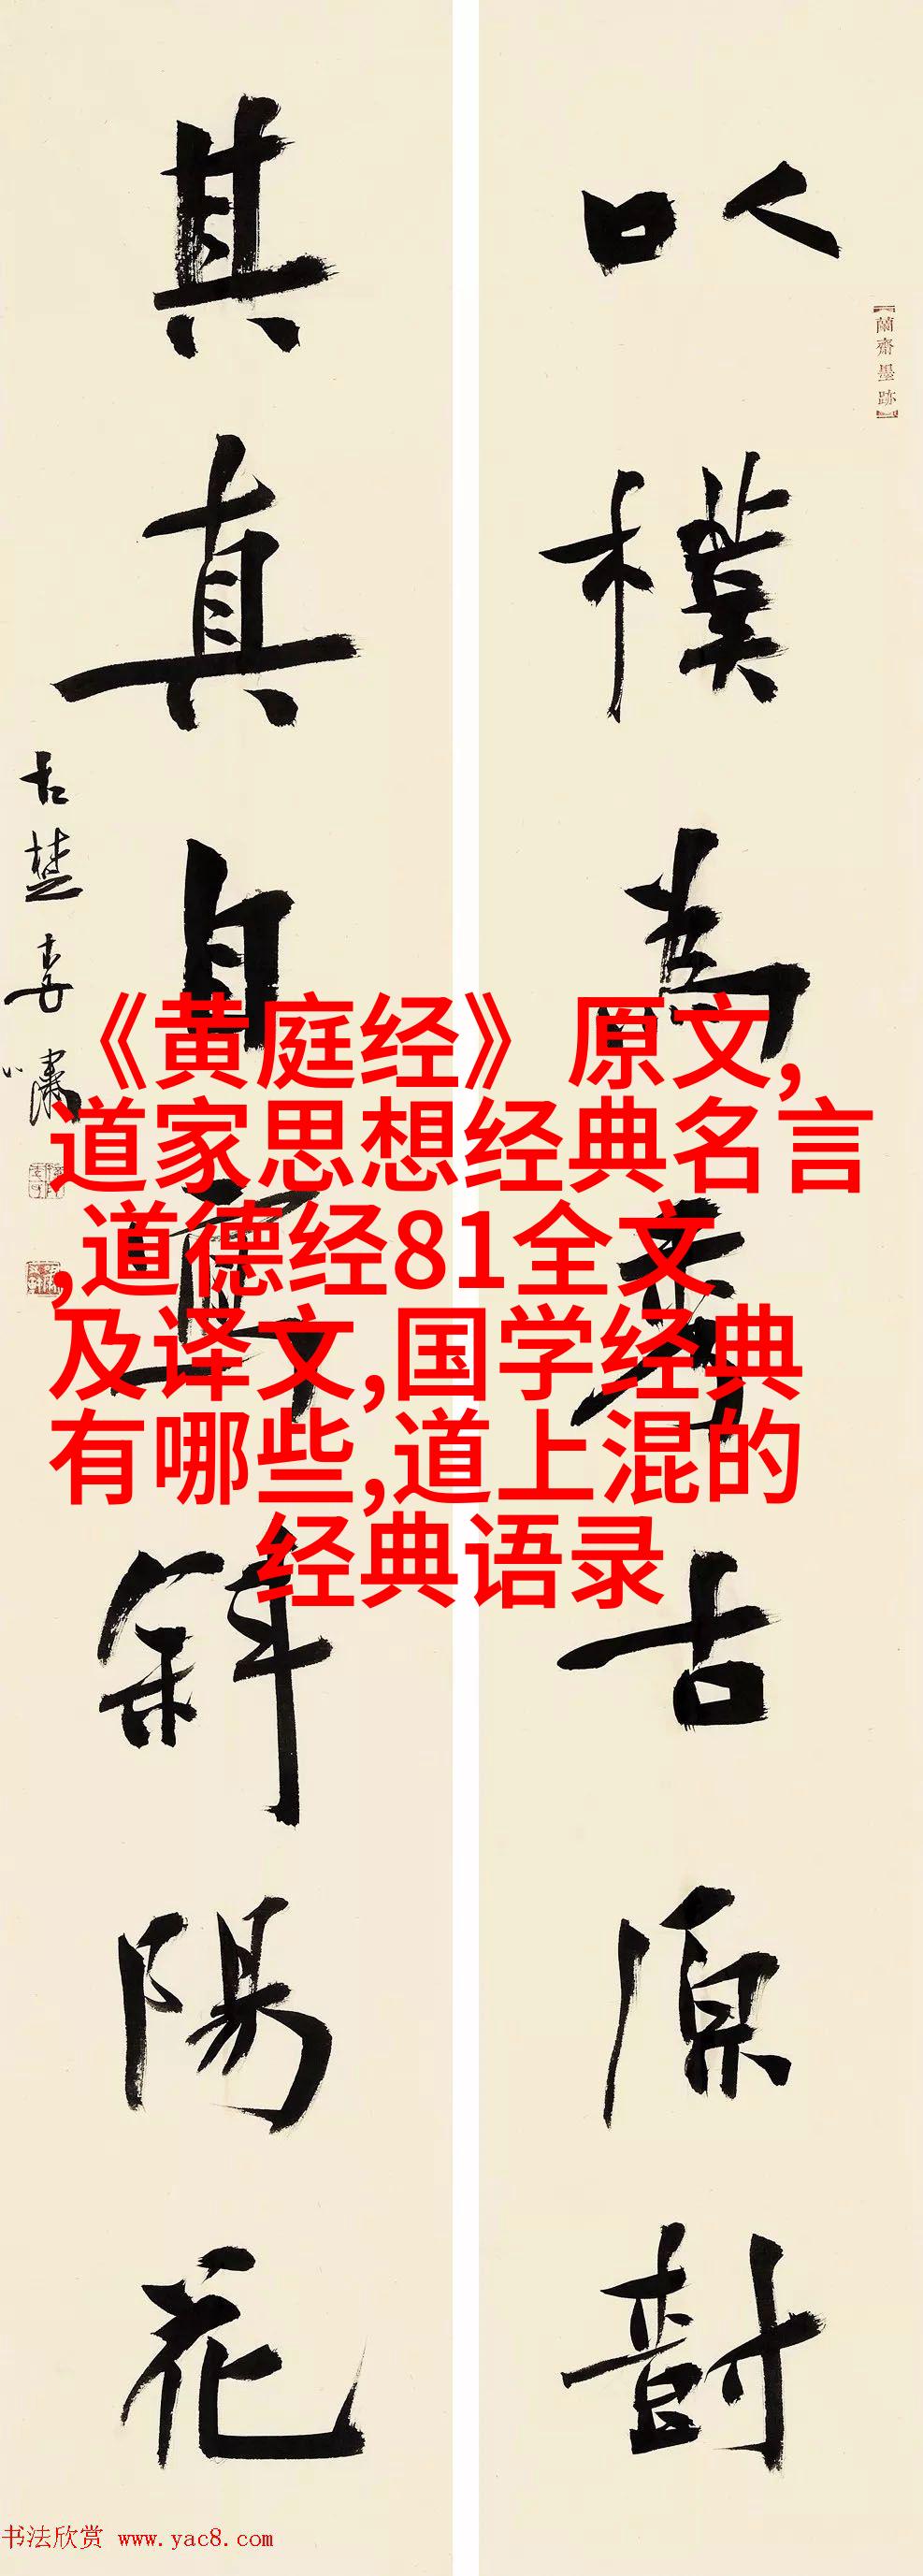 以樸為秀古原樹
【蘭齋墨跡】
其真自寫斜陽花
古楚李
《黄庭经》原文,
道家思想经典名言
,道德经81全文
及译文,国学经典
有哪些,道上混的
经典语录
书法欣赏 www.yac8.com